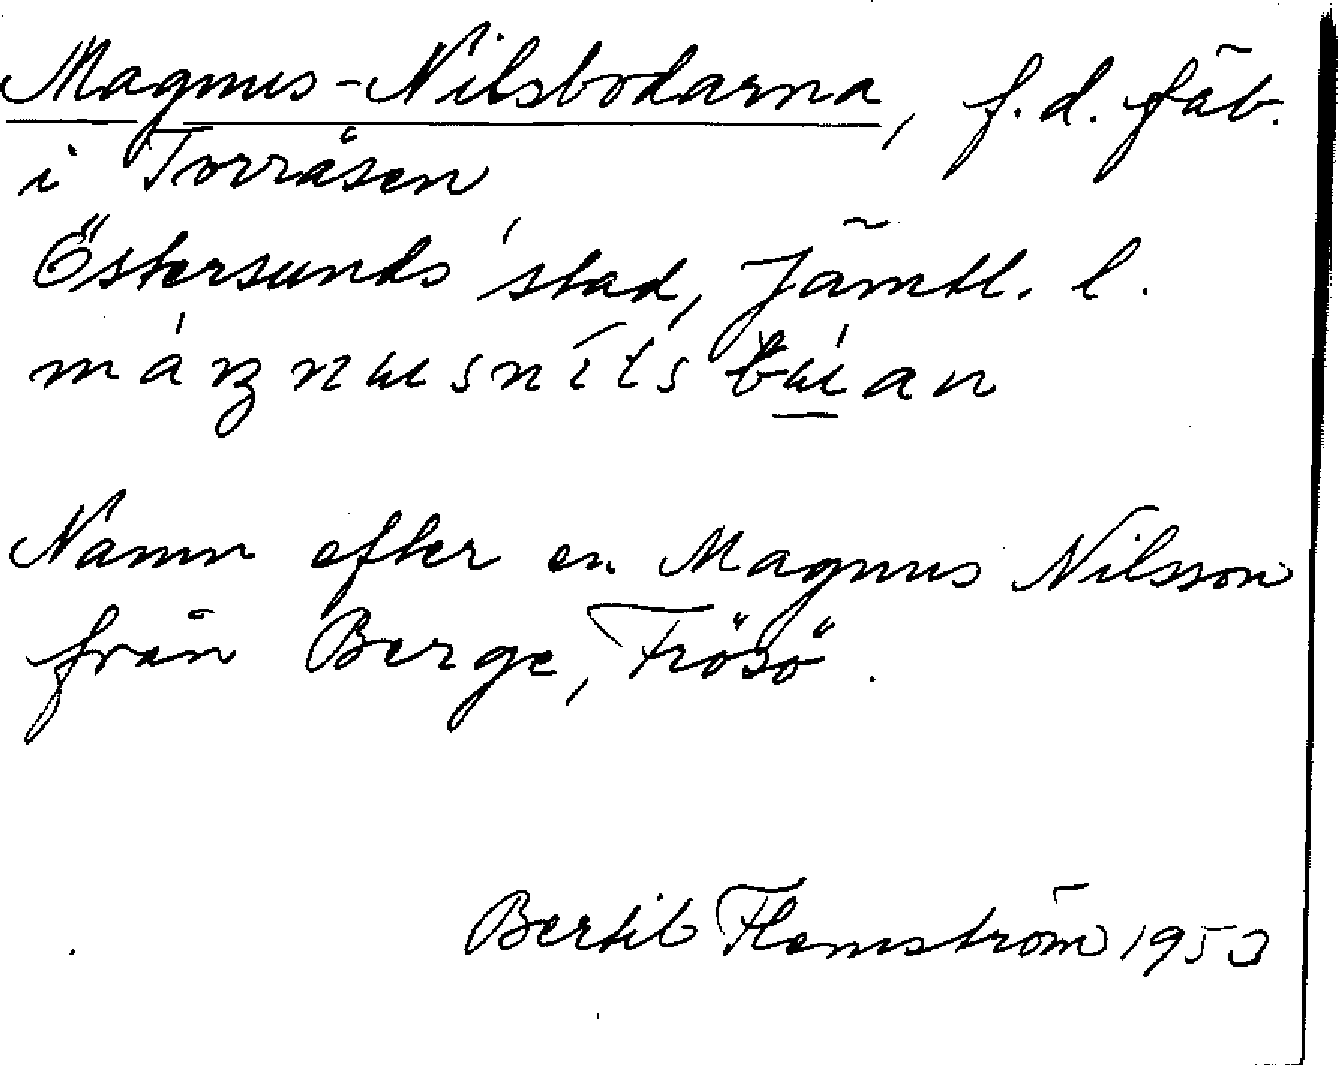 Magnus-Nilsbodarna, f.d. fäb.
i Torråsen
Östersunds stad, Jämtl. l.
Namn efter en Magnus Nilsson
från Berge, Frösö.
Bertil Flemström 1950